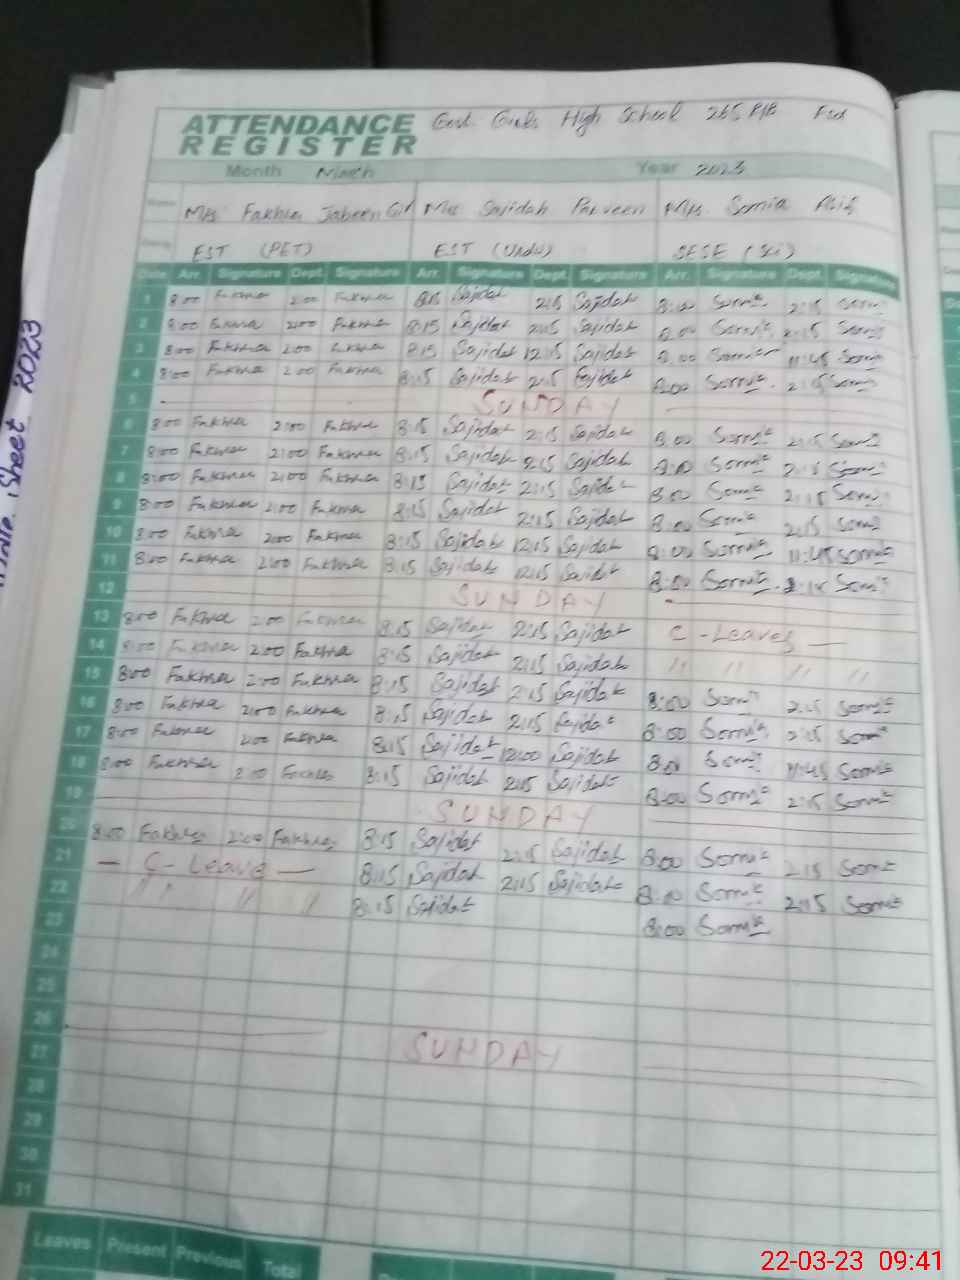 ATTENDANCE REGISTER Govt Girls High School 265 R/B Fsd
Month March Year 2023
Name Mrs Fakhra Jabeen Gil Mrs Sajidah Parveen Mrs. Somia Asif
EST (PET) EST (Urdu) SESE (Sci)
Date Arr. Signature Dept. Signature Arr. Signature Dept. Signature Arr. Signature Dept. Signature
1 8:00 Fakhra 2:00 Fakhra 8:15 Sajidah 2:15 Sajidah 8:00 Somia 2:15 Somia
2 8:00 Fakhra 2:00 Fakhra 8:15 Sajidah 2:15 Sajidah 8:00 Somia 2:15 Somia
3 8:00 Fakhra 2:00 Fakhra 8:15 Sajidah 12:15 Sajidah 8:00 Somia 11:45 Somia
4 8:00 Fakhra 2:00 Fakhra 8:15 Sajidah 2:15 Sajidah 8:00 Somia 2:15 Somia
5 SUNDAY
6 8:00 Fakhra 2:00 Fakhra 8:15 Sajidah 2:15 Sajidah 8:00 Somia 2:15 Somia
7 8:00 Fakhra 2:00 Fakhra 8:15 Sajidah 2:15 Sajidah 8:00 Somia 2:15 Somia
8 8:00 Fakhra 2:00 Fakhra 8:15 Sajidah 2:15 Sajidah 8:00 Somia 2:15 Somia
9 8:00 Fakhra 2:00 Fakhra 8:15 Sajidah 2:15 Sajidah 8:00 Somia 2:15 Somia
10 8:00 Fakhra 2:00 Fakhra 8:15 Sajidah 12:15 Sajidah 8:00 Somia 11:45 Somia
11 8:00 Fakhra 2:00 Fakhra 8:15 Sajidah 12:15 Sajidah 8:00 Somia 2:15 Somia
12 SUNDAY
13 8:00 Fakhra 2:00 Fakhra 8:15 Sajidah 2:15 Sajidah C-Leaves —
14 8:00 Fakhra 2:00 Fakhra 8:15 Sajidah 2:15 Sajidah " " " "
15 8:00 Fakhra 2:00 Fakhra 8:15 Sajidah 2:15 Sajidah 8:00 Somia 2:15 Somia
16 8:00 Fakhra 2:00 Fakhra 8:15 Sajidah 2:15 Sajidah 8:00 Somia 2:15 Somia
17 8:00 Fakhra 2:00 Fakhra 8:15 Sajidah 12:00 Sajidah 8:00 Somia 11:45 Somia
18 8:00 Fakhra 2:00 Fakhra 8:15 Sajidah 2:15 Sajidah 8:00 Somia 2:15 Somia
19 SUNDAY
20 8:00 Fakhra 2:00 Fakhra 8:15 Sajidah 2:15 Sajidah 8:00 Somia 2:15 Somia
21 — C-Leave — 8:15 Sajidah 2:15 Sajidah 8:00 Somia 2:15 Somia
22 " " " " 8:15 Sajidah 8:00 Somia
23
24
25
26 SUNDAY
27
28
29
30
31
Leaves Present Previous Total
Sheet 2023
22-03-23 09:41